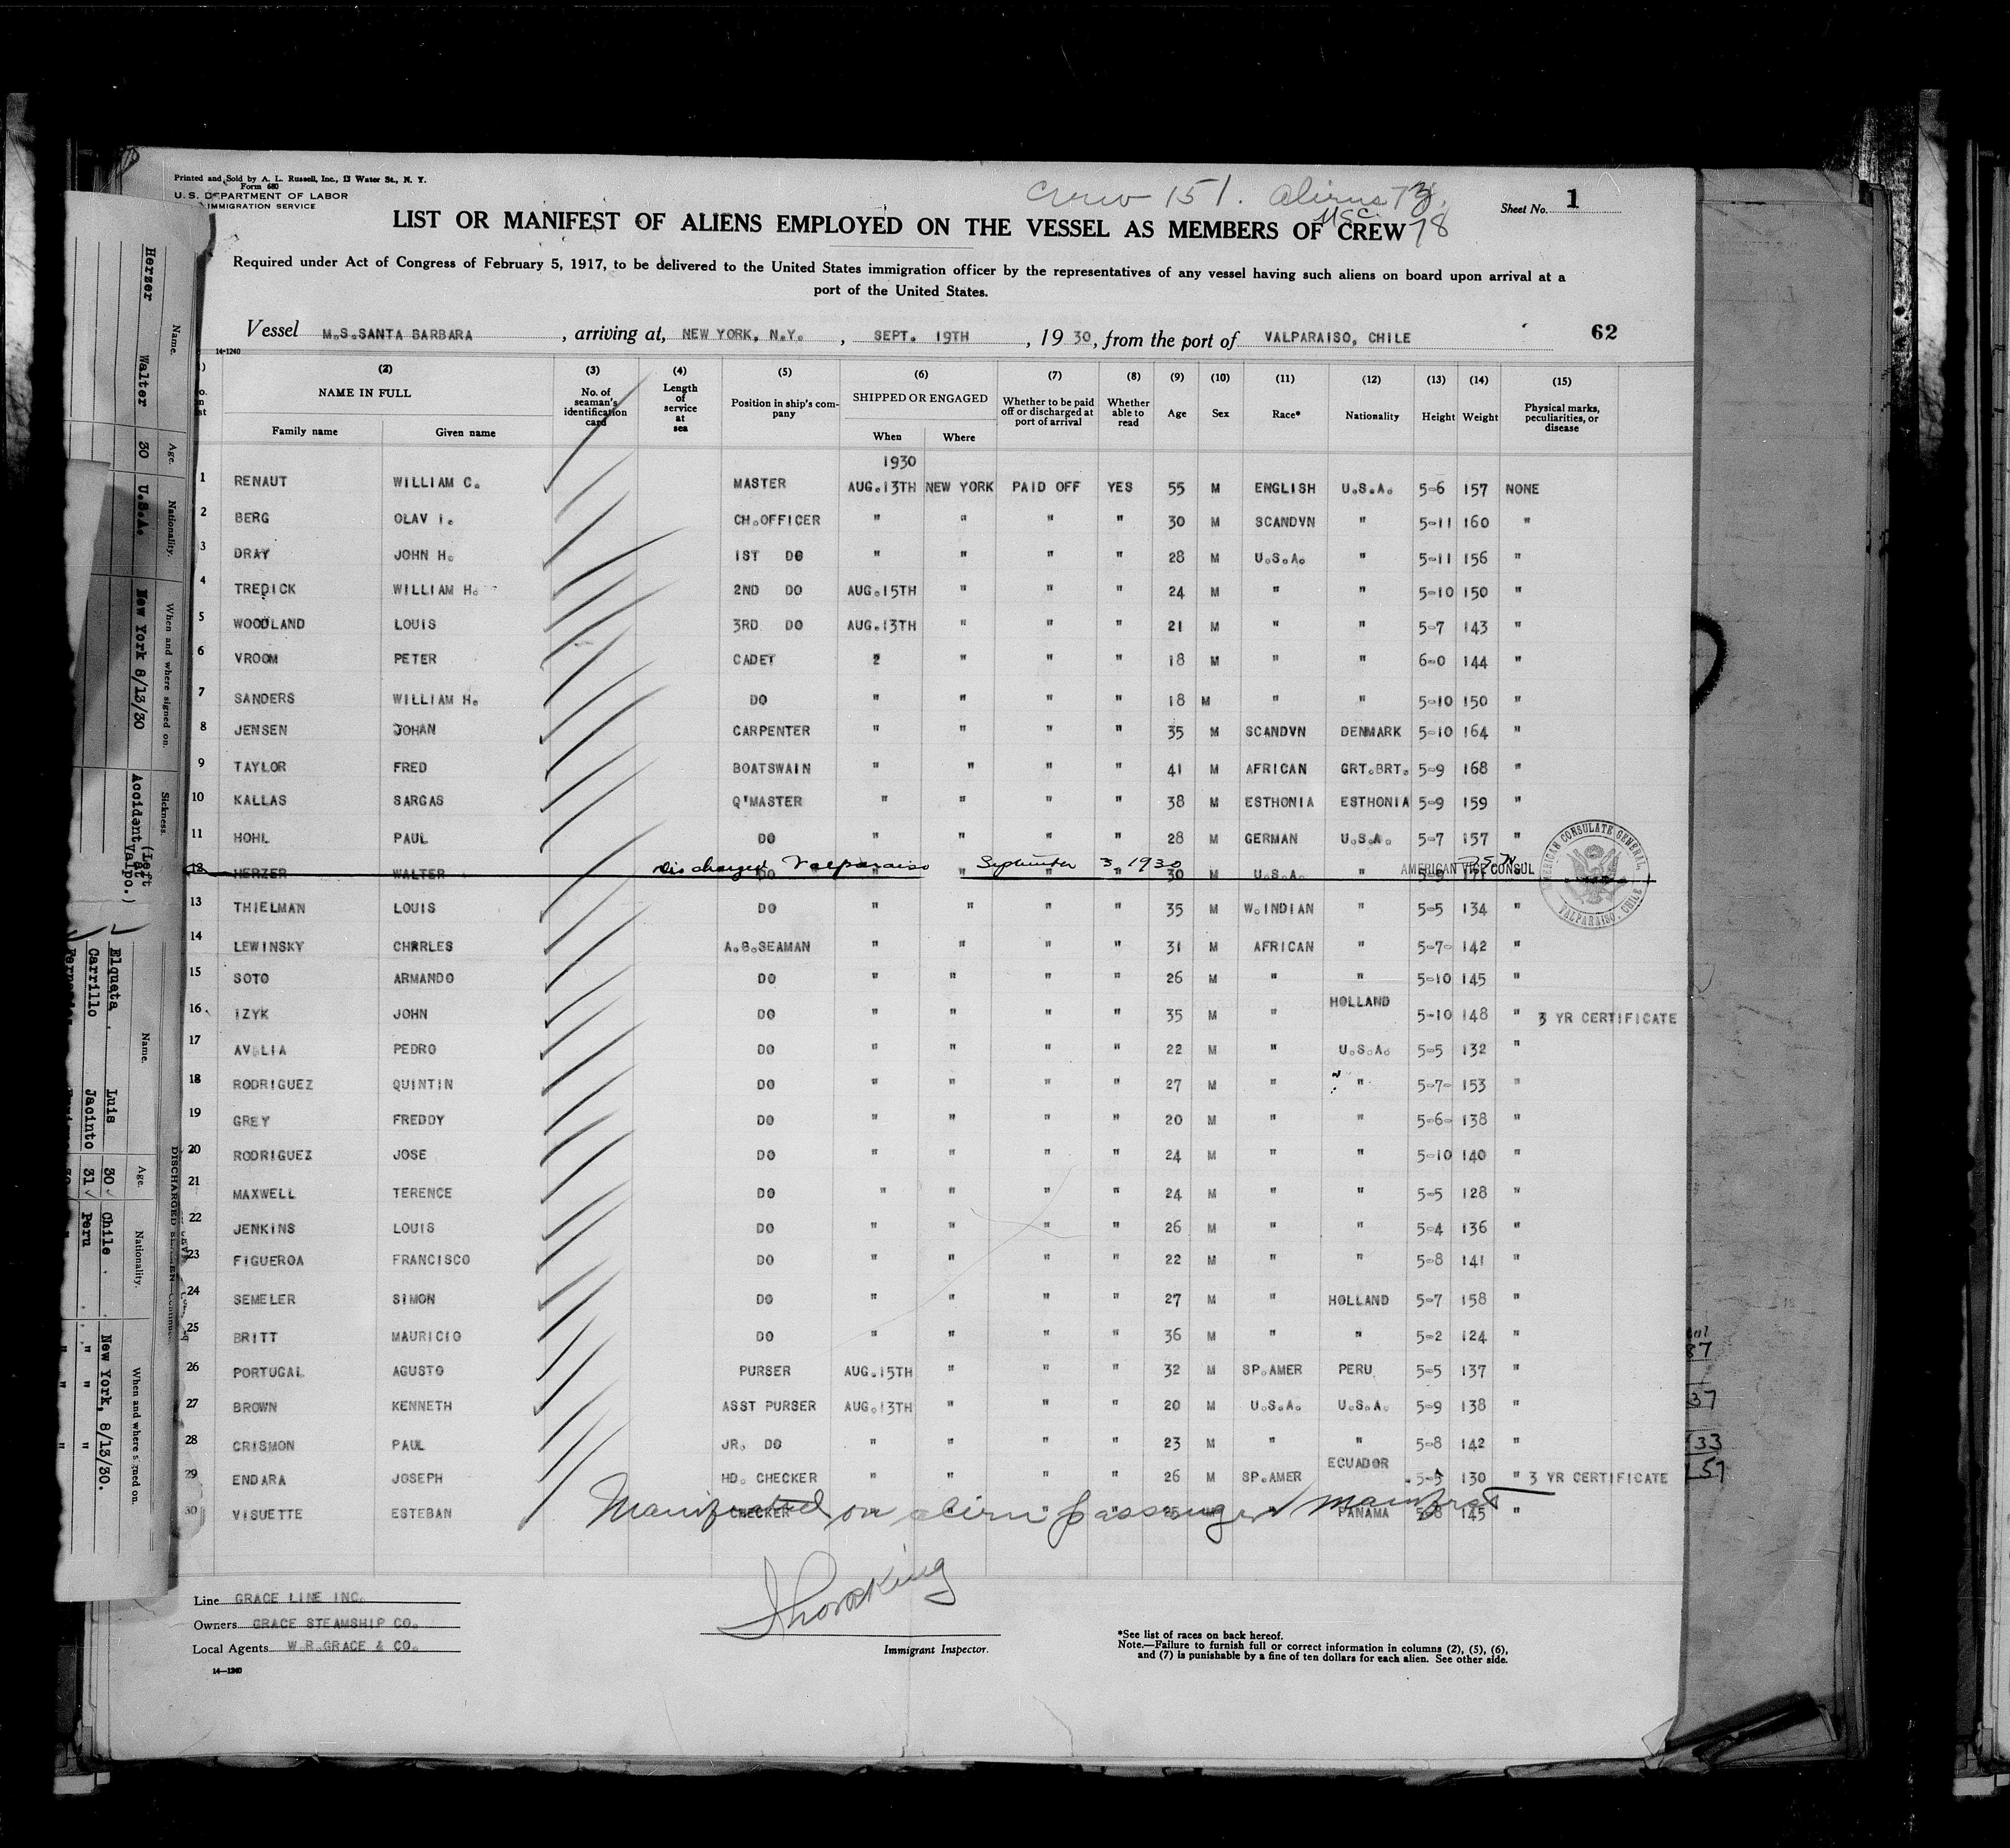 Printed and Sold by A. L. Russell, Inc., 13 Water St., N. Y.
Form 680
U. S. DEPARTMENT OF LABOR
IMMIGRATION SERVICE
Crew 151. Aliens 73.
USC. 78
Sheet No. 1
LIST OR MANIFEST OF ALIENS EMPLOYED ON THE VESSEL AS MEMBERS OF CREW
Required under Act of Congress of February 5, 1917, to be delivered to the United States immigration officer by the representatives of any vessel having such aliens on board upon arrival at a
port of the United States.
Vessel M.S.SANTA BARBARA, arriving at, NEW YORK, N.Y., SEPT. 19TH, 1930, from the port of VALPARAISO, CHILE 62
14-1240
(2) (3) (4) (5) (6) (7) (8) (9) (10) (11) (12) (13) (14) (15)
NAME IN FULL No. of seaman's identification card Length of service at sea Position in ship's company SHIPPED OR ENGAGED Whether to be paid off or discharged at port of arrival Whether able to read Age Sex Race* Nationality Height Weight Physical marks, peculiarities, or disease
Family name Given name When Where
1930
1 RENAUT WILLIAM C. MASTER AUG.13TH NEW YORK PAID OFF YES 55 M ENGLISH U.S.A. 5-6 157 NONE
2 BERG OLAV I. CH.OFFICER " " " " 30 M SCANDVN " 5-11 160 "
3 DRAY JOHN H. 1ST DO " " " " 28 M U.S.A. " 5-11 156 "
4 TREDICK WILLIAM H. 2ND DO AUG.15TH " " " 24 M " " 5-10 150 "
5 WOODLAND LOUIS 3RD DO AUG.13TH " " " 21 M " " 5-7 143 "
6 VROOM PETER CADET 2 " " " 18 M " " 6-0 144 "
7 SANDERS WILLIAM H. DO " " " " 18 M " " 5-10 150 "
8 JENSEN JOHAN CARPENTER " " " " 35 M SCANDVN DENMARK 5-10 164 "
9 TAYLOR FRED BOATSWAIN " " " " 41 M AFRICAN GRT.BRT. 5-9 168 "
10 KALLAS SARGAS Q'MASTER " " " " 38 M ESTHONIA ESTHONIA 5-9 159 "
11 HOHL PAUL DO " " " " 28 M GERMAN U.S.A. 5-7 157 "
12 HERZER WALTER DO " " " " 30 M U.S.A. " 5-9 171
Discharged Valparaiso September 3, 1930
AMERICAN VICE CONSUL
AMERICAN CONSULATE GENERAL, VALPARAISO, CHILE
13 THIELMAN LOUIS DO " " " " 35 M W.INDIAN " 5-5 134 "
14 LEWINSKY CHARLES A.B.SEAMAN " " " " 31 M AFRICAN " 5-7- 142 "
15 SOTO ARMANDO DO " " " " 26 M " " 5-10 145 "
16 IZYK JOHN DO " " " " 35 M " HOLLAND 5-10 148 " 3 YR CERTIFICATE
17 PEDRO DO " " " " 22 M " U.S.A. 5-5 132 "
18 RODRIGUEZ QUINTIN DO " " " " 27 M " " 5-7- 153 "
19 GREY FREDDY DO " " " " 20 M " " 5-6- 138 "
20 RODRIGUEZ JOSE DO " " " " 24 M " " 5-10 140 "
21 MAXWELL TERENCE DO " " " " 24 M " " 5-5 128 "
22 JENKINS LOUIS DO " " " " 26 M " " 5-4 136 "
23 FIGUEROA FRANCISCO DO " " " " 22 M " " 5-8 141 "
24 SEMELER SIMON DO " " " " 27 M " HOLLAND 5-7 158 "
25 BRITT MAURICIO DO " " " " 36 M " " 5-2 124 "
26 PORTUGAL AGUSTO PURSER AUG.15TH " " " 32 M SP.AMER PERU 5-5 137 "
27 BROWN KENNETH ASST PURSER AUG.13TH " " " 20 M U.S.A. U.S.A. 5-9 138 "
28 CRISMON PAUL JR. DO " " " " 23 M " " 5-8 142 "
29 ENDARA JOSEPH HD. CHECKER " " " " 26 M SP.AMER ECUADOR 5-5 130 " 3 YR CERTIFICATE
30 VISUETTE ESTEBAN CHECKER PANAMA 5-8 145 "
Manifested on alien passenger manifest
Line GRACE LINE INC.
Owners GRACE STEAMSHIP CO.
Local Agents W.R.GRACE & CO.
14—1240
Immigrant Inspector.
*See list of races on back hereof.
Note.—Failure to furnish full or correct information in columns (2), (5), (6),
and (7) is punishable by a fine of ten dollars for each alien. See other side.
Name. Age. Nationality. When and where signed on. Sickness.
Herzer Walter 30 U.S.A. New York 8/13/30 Accident (Left at Valpo.)
DISCHARGED
Name. Age. Nationality. When and where signed on.
Elqueta Luis 30 Chile New York, 8/13/30.
Carrillo Jacinto 31 Peru " "
37
33